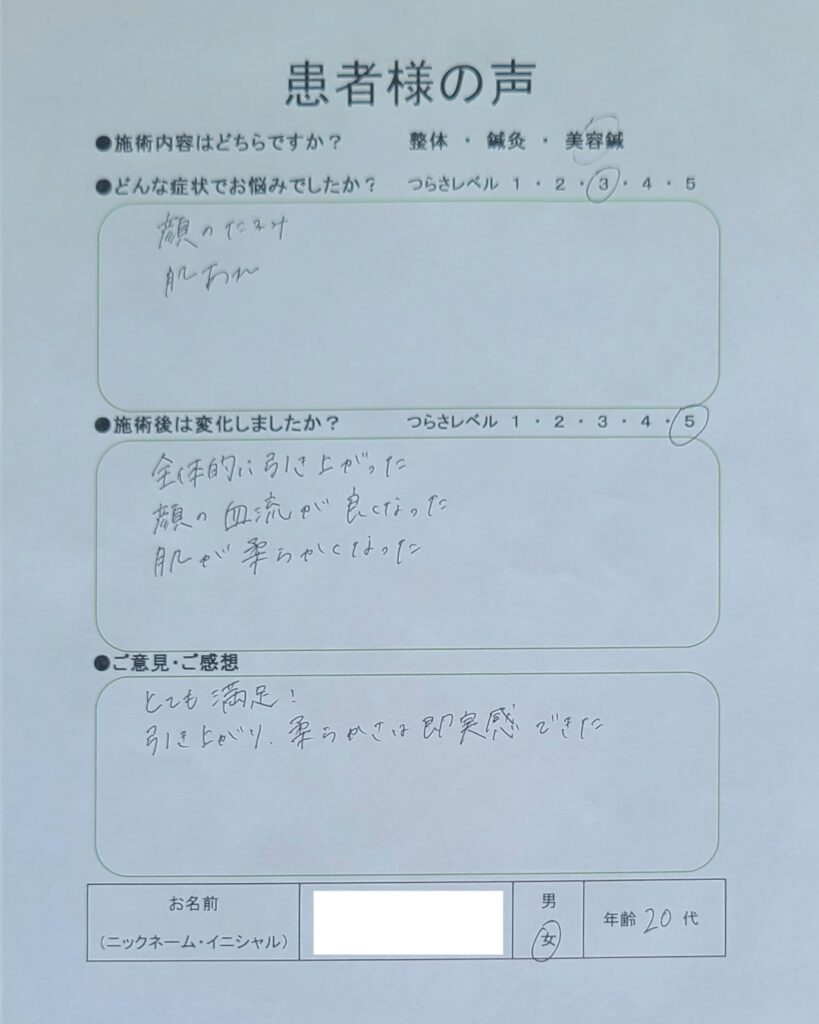 患者様の声
●施術内容はどちらですか？ 整体 ・ 鍼灸 ・ 美容鍼
●どんな症状でお悩みでしたか？ つらさレベル 1 ・ 2 ・ 3 ・ 4 ・ 5
顔のたるみ
肌あれ
●施術後は変化しましたか？ つらさレベル 1 ・ 2 ・ 3 ・ 4 ・ 5
全体的に引き上がった
顔の血流が良くなった
肌が柔らかくなった
●ご意見・ご感想
とても満足！
引き上がり、柔らかさは即実感できた
お名前
（ニックネーム・イニシャル）
男
女
年齢 20 代